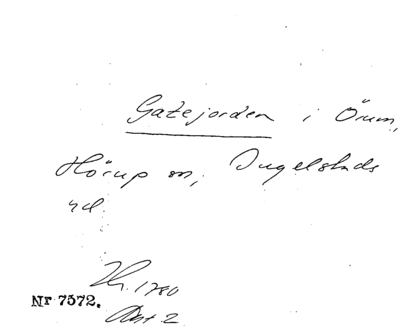 Gatejorden i Örum,
Hörup sn, Ingelstads
hd.
1780
Nr 7572.
Akt 2